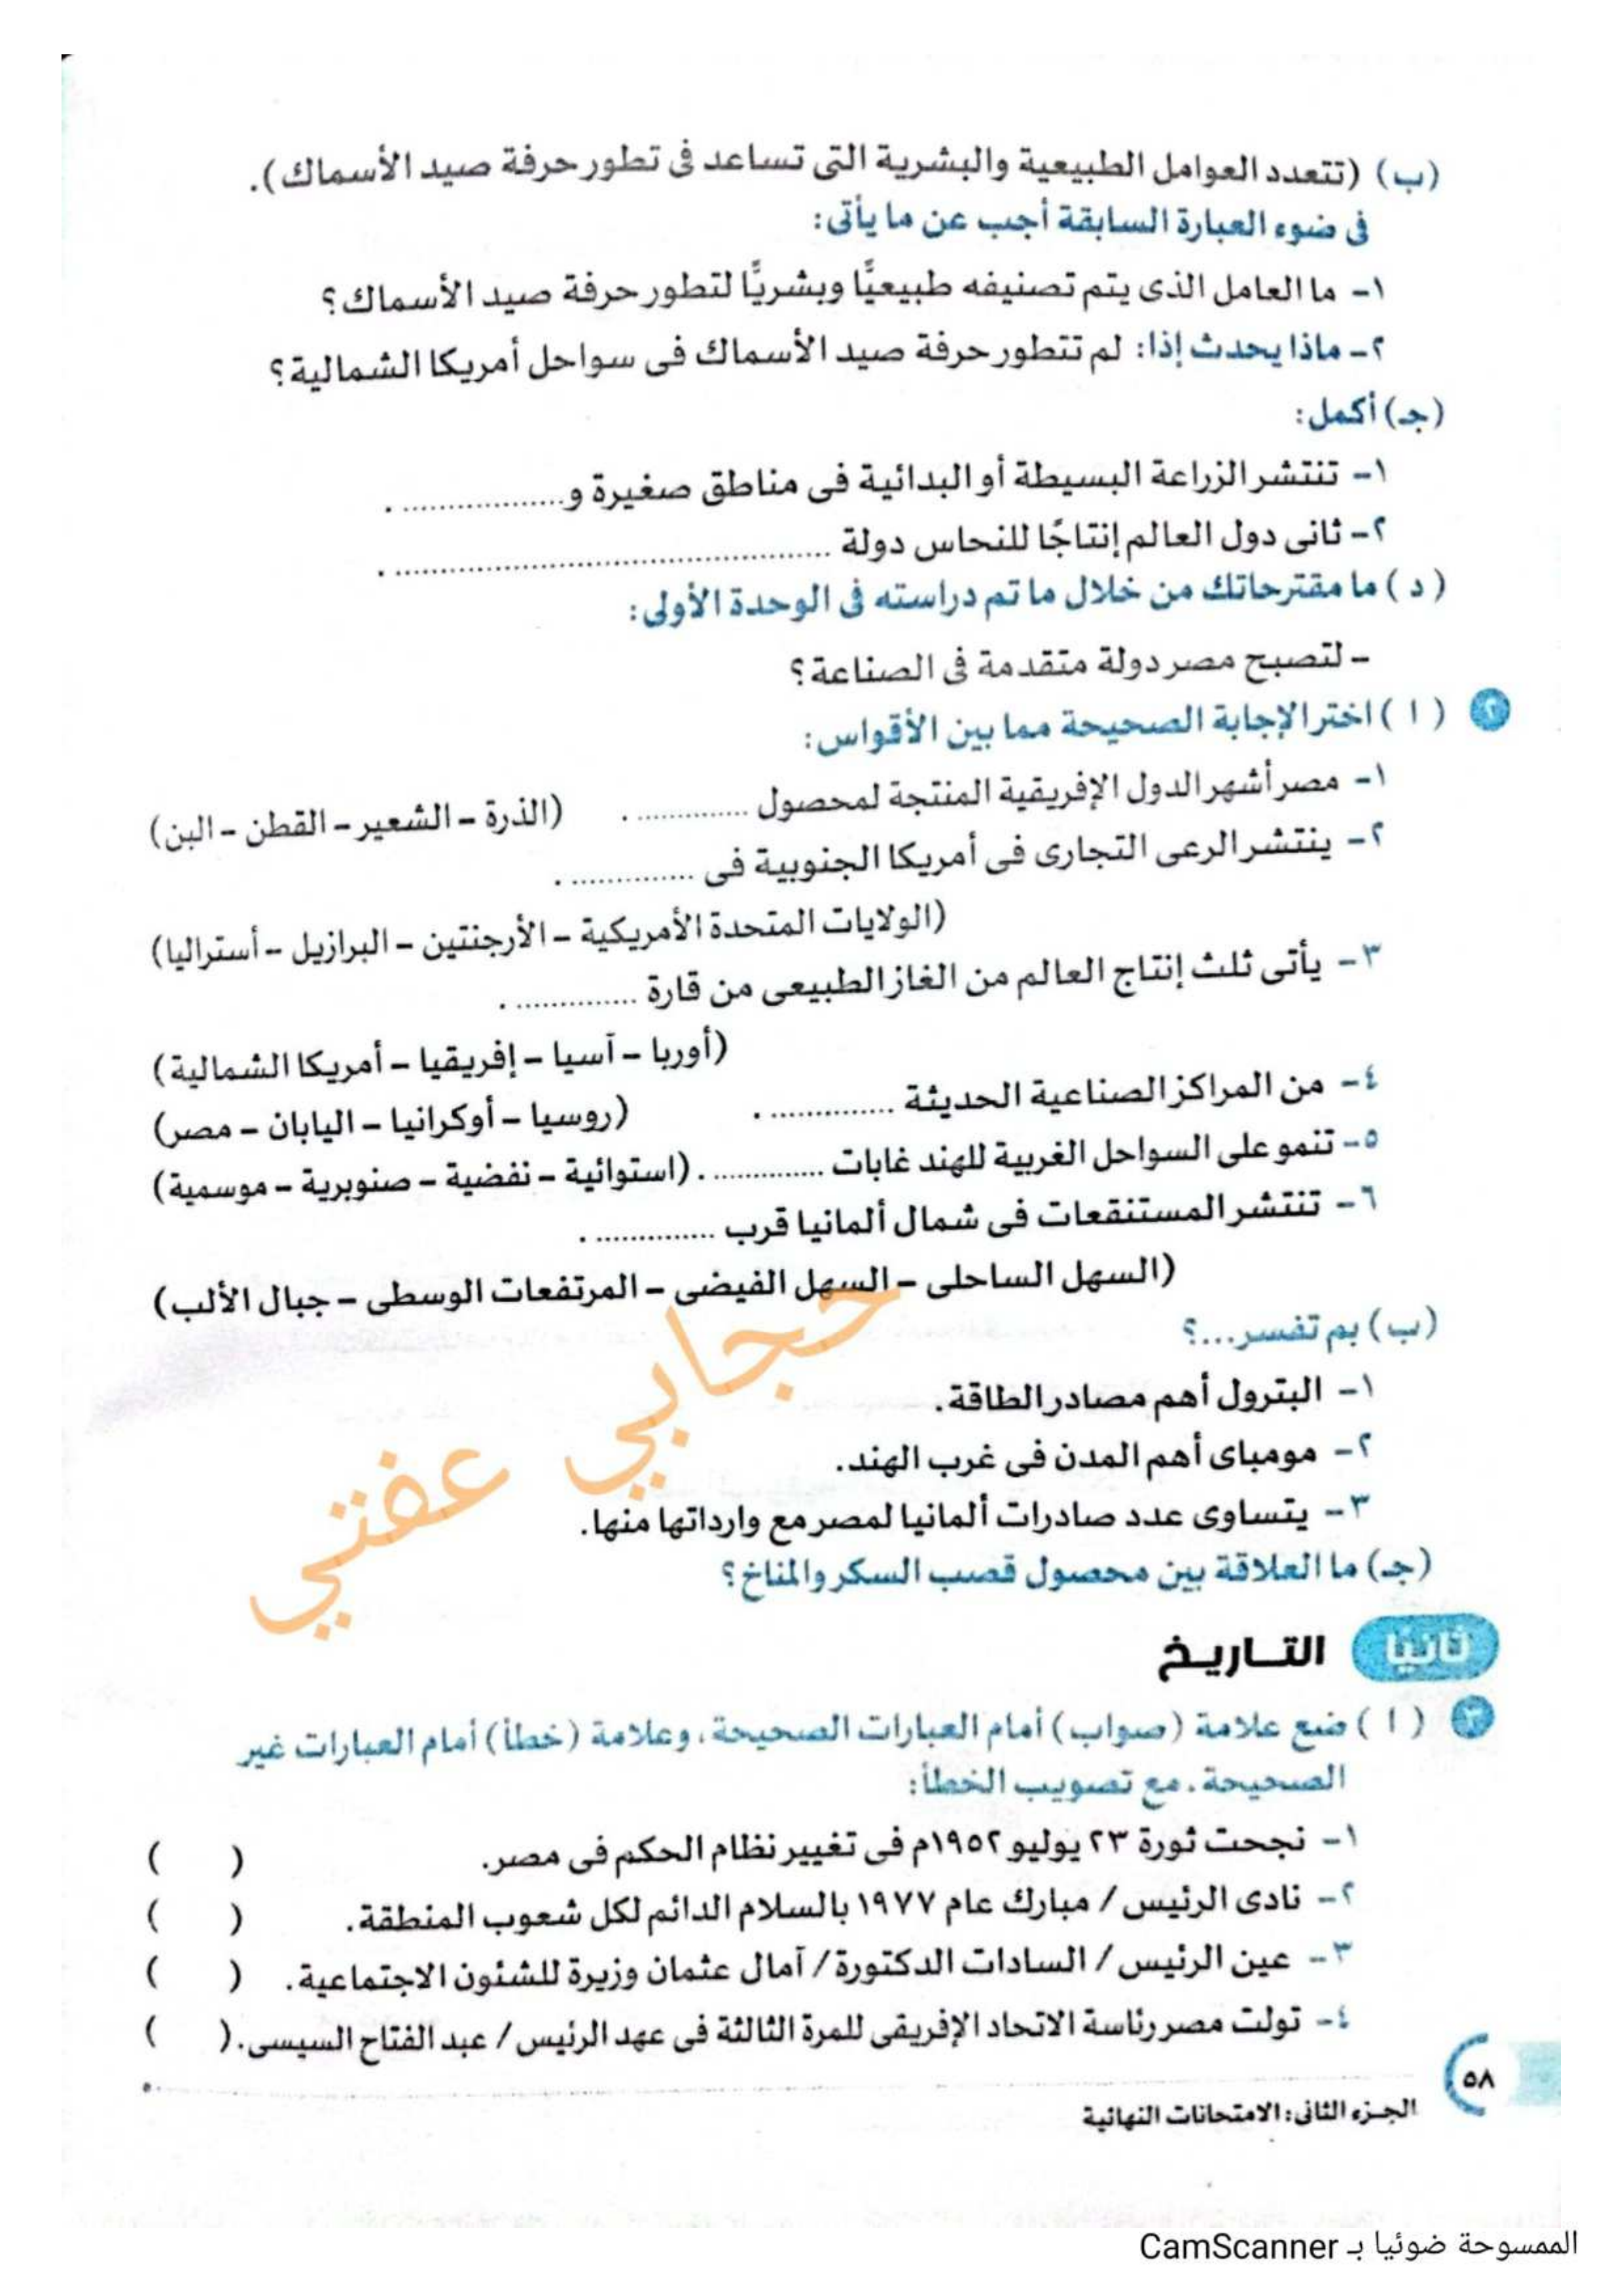 (ب) (تتعدد العوامل الطبيعية والبشرية التى تساعد فى تطور حرفة صيد الأسماك).
فى ضوء العبارة السابقة أجب عن ما يأتى:
١- ما العامل الذى يتم تصنيفه طبيعيًّا وبشريًّا لتطور حرفة صيد الأسماك؟
٢- ماذا يحدث إذا: لم تتطور حرفة صيد الأسماك فى سواحل أمريكا الشمالية؟
(جـ) أكمل:
١- تنتشر الزراعة البسيطة أو البدائية فى مناطق صغيرة و.................. .
٢- ثانى دول العالم إنتاجًا للنحاس دولة ................................................ .
( د ) ما مقترحاتك من خلال ما تم دراسته فى الوحدة الأولى:
- لتصبح مصر دولة متقدمة فى الصناعة؟
٢ ( ا ) اختر الإجابة الصحيحة مما بين الأقواس:
١- مصر أشهر الدول الإفريقية المنتجة لمحصول .............. . (الذرة - الشعير - القطن - البن)
٢- ينتشر الرعى التجارى فى أمريكا الجنوبية فى .............. .
(الولايات المتحدة الأمريكية - الأرجنتين - البرازيل - أستراليا)
٣- يأتى ثلث إنتاج العالم من الغاز الطبيعى من قارة .............. .
(أوربا - آسيا - إفريقيا - أمريكا الشمالية)
٤- من المراكز الصناعية الحديثة .............. . (روسيا - أوكرانيا - اليابان - مصر)
٥- تنمو على السواحل الغربية للهند غابات ............. . (استوائية - نفضية - صنوبرية - موسمية)
٦- تنتشر المستنقعات فى شمال ألمانيا قرب .............. .
(السهل الساحلى - السهل الفيضى - المرتفعات الوسطى - جبال الألب)
(ب) بم تفسر...؟
١- البترول أهم مصادر الطاقة.
٢- مومباى أهم المدن فى غرب الهند.
٣- يتساوى عدد صادرات ألمانيا لمصر مع وارداتها منها.
حجابي عفتي
(جـ) ما العلاقة بين محصول قصب السكر والمناخ؟
ثانيًا التاريخ
٣ ( ا ) ضع علامة (صواب) أمام العبارات الصحيحة، وعلامة (خطأ) أمام العبارات غير
الصحيحة، مع تصويب الخطأ:
١- نجحت ثورة ٢٣ يوليو ١٩٥٢م فى تغيير نظام الحكم فى مصر. ( )
٢- نادى الرئيس / مبارك عام ١٩٧٧ بالسلام الدائم لكل شعوب المنطقة. ( )
٣- عين الرئيس / السادات الدكتورة / آمال عثمان وزيرة للشئون الاجتماعية. ( )
٤- تولت مصر رئاسة الاتحاد الإفريقى للمرة الثالثة فى عهد الرئيس / عبد الفتاح السيسى. ( )
٥٨
الجزء الثانى: الامتحانات النهائية
الممسوحة ضوئيا بـ CamScanner